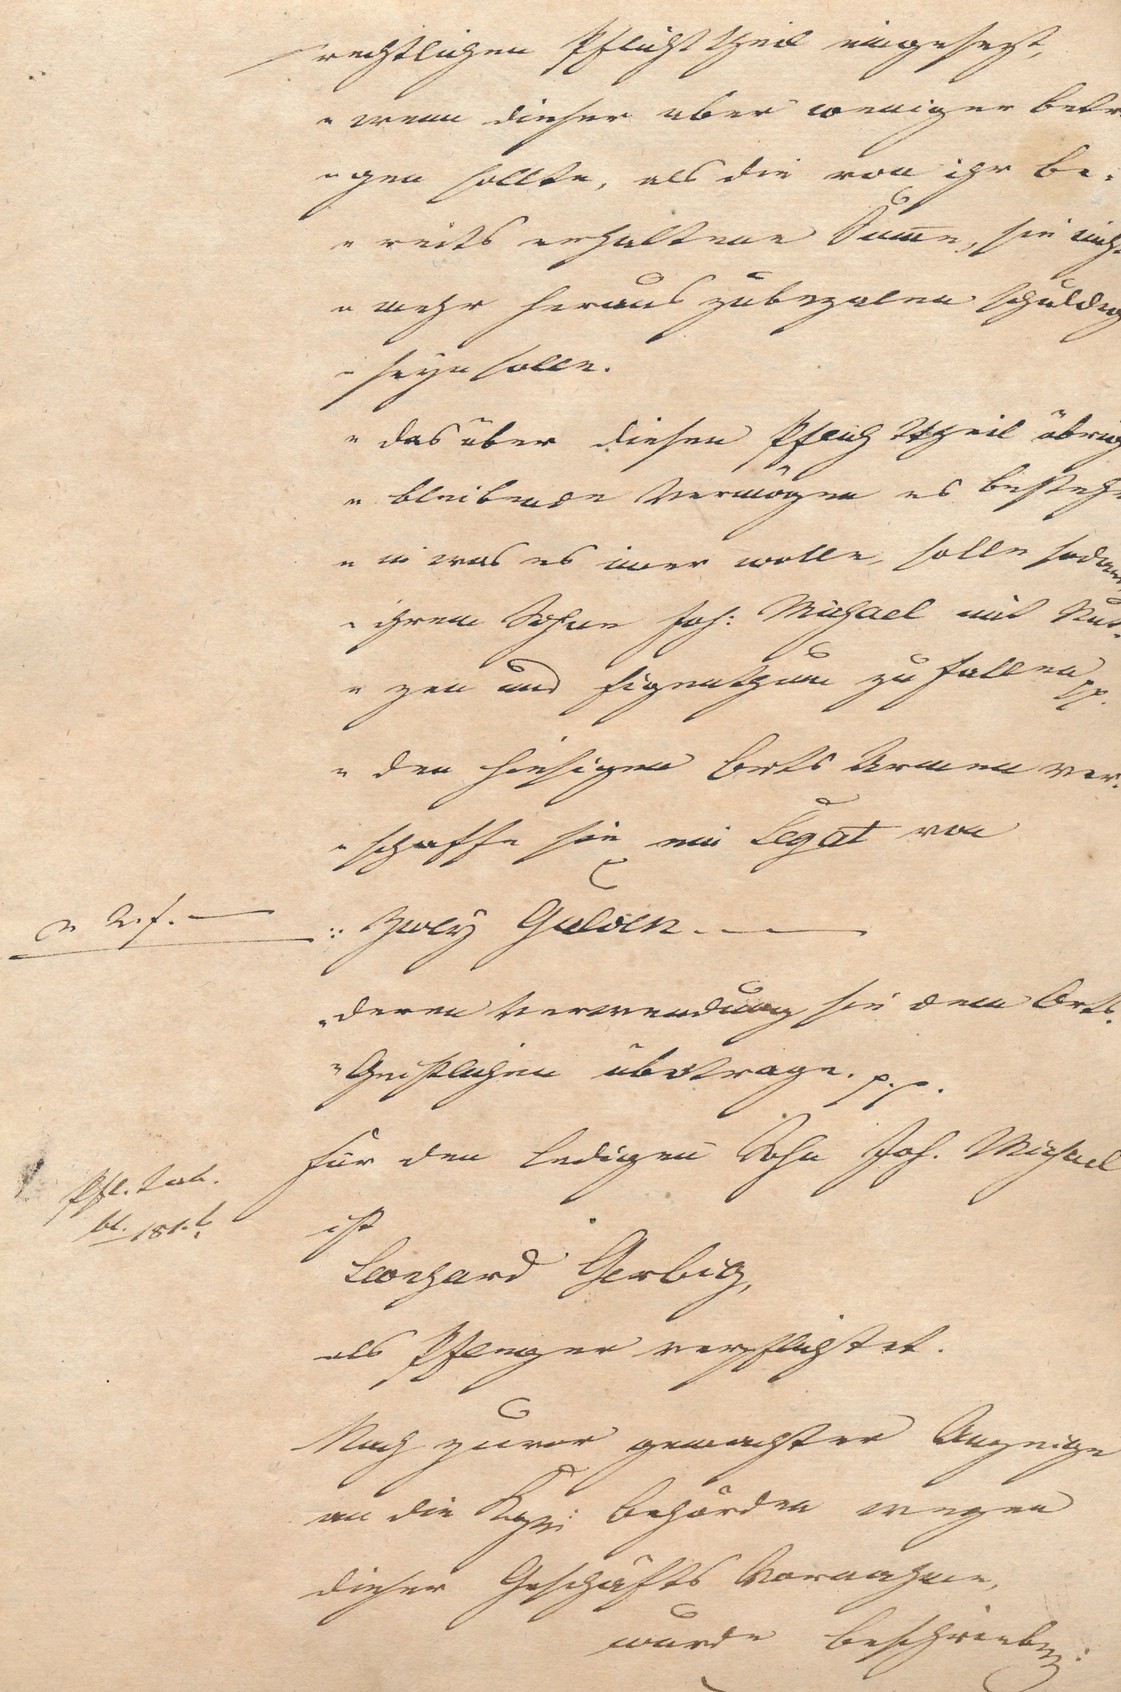 rechtlichen Pflicht Theil eingesezt,
" wenn dieser aber weniger betra
" gen sollte, als die von ihr be:
" reits erhaltene Summe, sie nichts
" mehr heraus zubezalen schuldig
" seyn solle.
" das über diesen Pflicht Theil übrig
" bleibende Vermögen es bestehe
" in was es imer wolle, solle sodann
" ihrem Sohne Joh: Michael mit Nu-
" zen und Eigenthum zu fallen pp.
" den hiesigen Orts Armen ver-
" schaffe sie ein Legat von
" 2. f. —
" Zwey Gulden. —
" deren Verwendung sie dem Orts-
" Geistlichen übertrage. p. p.
für den ledigen Sohn Joh. Michael
Pfl. Tab.
bl. 181.b.
ist
Leonhard Gerbig,
als Pfleger verpflichtet.
Nach zuvor gemachter Anzeige
an die Behörden wegen
dieser Geschäfts Vornahme,
wurde beschrieben: